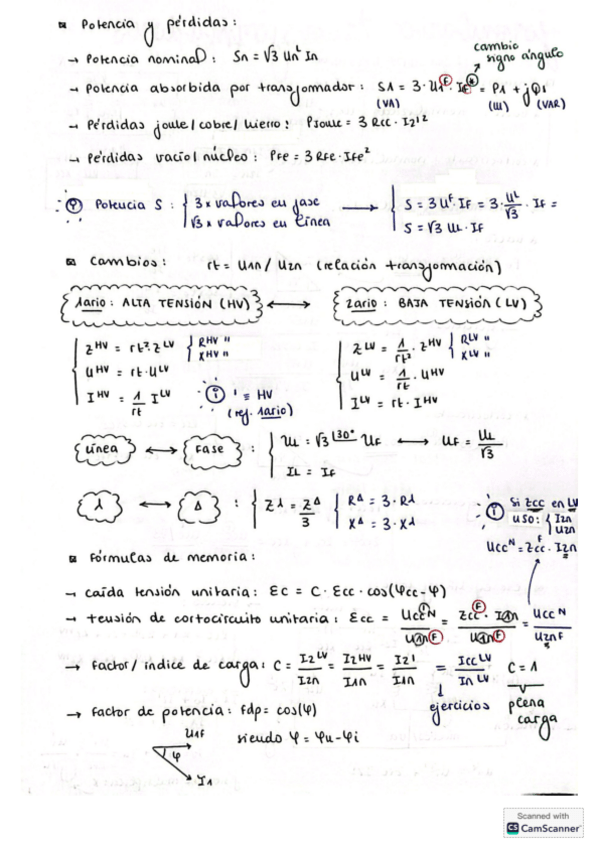 Potencia y pérdidas:
→ Potencia nominal: Sn = √3 Un^L In
cambio signo ángulo
→ Potencia absorbida por transformador: S1 = 3 · U1^F · I1F* = P1 + jQ1
(VA) (W) (VAR)
→ Pérdidas joule/cobre/hierro: Pjoule = 3 Rcc · I2'²
→ Pérdidas vacío/núcleo: PFe = 3 RFe · IFe²
Potencia S: { 3 x valores en fase → { S = 3 U^F · IF = 3 · U^L/√3 · IF =
√3 x valores en línea S = √3 UL · IF
Cambios: rt = U1n / U2n (relación transformación)
1ario: ALTA TENSIÓN (HV) ↔ 2ario: BAJA TENSIÓN (LV)
Z^HV = rt² · Z^LV { R^HV " X^HV " Z^LV = 1/rt² · Z^HV { R^LV " X^LV "
U^HV = rt · U^LV U^LV = 1/rt · U^HV
I^HV = 1/rt I^LV ' ≡ HV (ref. 1ario) I^LV = rt · I^HV
línea ↔ fase : { UL = √3 |30° UF ↔ UF = UL/√3
IL = IF
⅄ ↔ Δ : { Z⅄ = Z^Δ/3 { R^Δ = 3 · R⅄
X^Δ = 3 · X⅄
Si Zcc en LV
uso: { I2n
U2n
Ucc^N = Zcc^F · I2n
Fórmulas de memoria:
→ caída tensión unitaria: Ec = C · Ecc · cos(φcc - φ)
→ tensión de cortocircuito unitaria: Ecc = Ucc^N/U1nF = Zcc^F · I1n/U1nF = Ucc^N/U2nF
→ Factor/índice de carga: C = I2^LV/I2n = I2^HV/I1n = I2'/I1n = Icc^LV/In^LV C = 1
ejercicios plena carga
→ Factor de potencia: fdp = cos(φ)
siendo φ = φu - φi
U1F
φ
I1
Scanned with
CS CamScanner